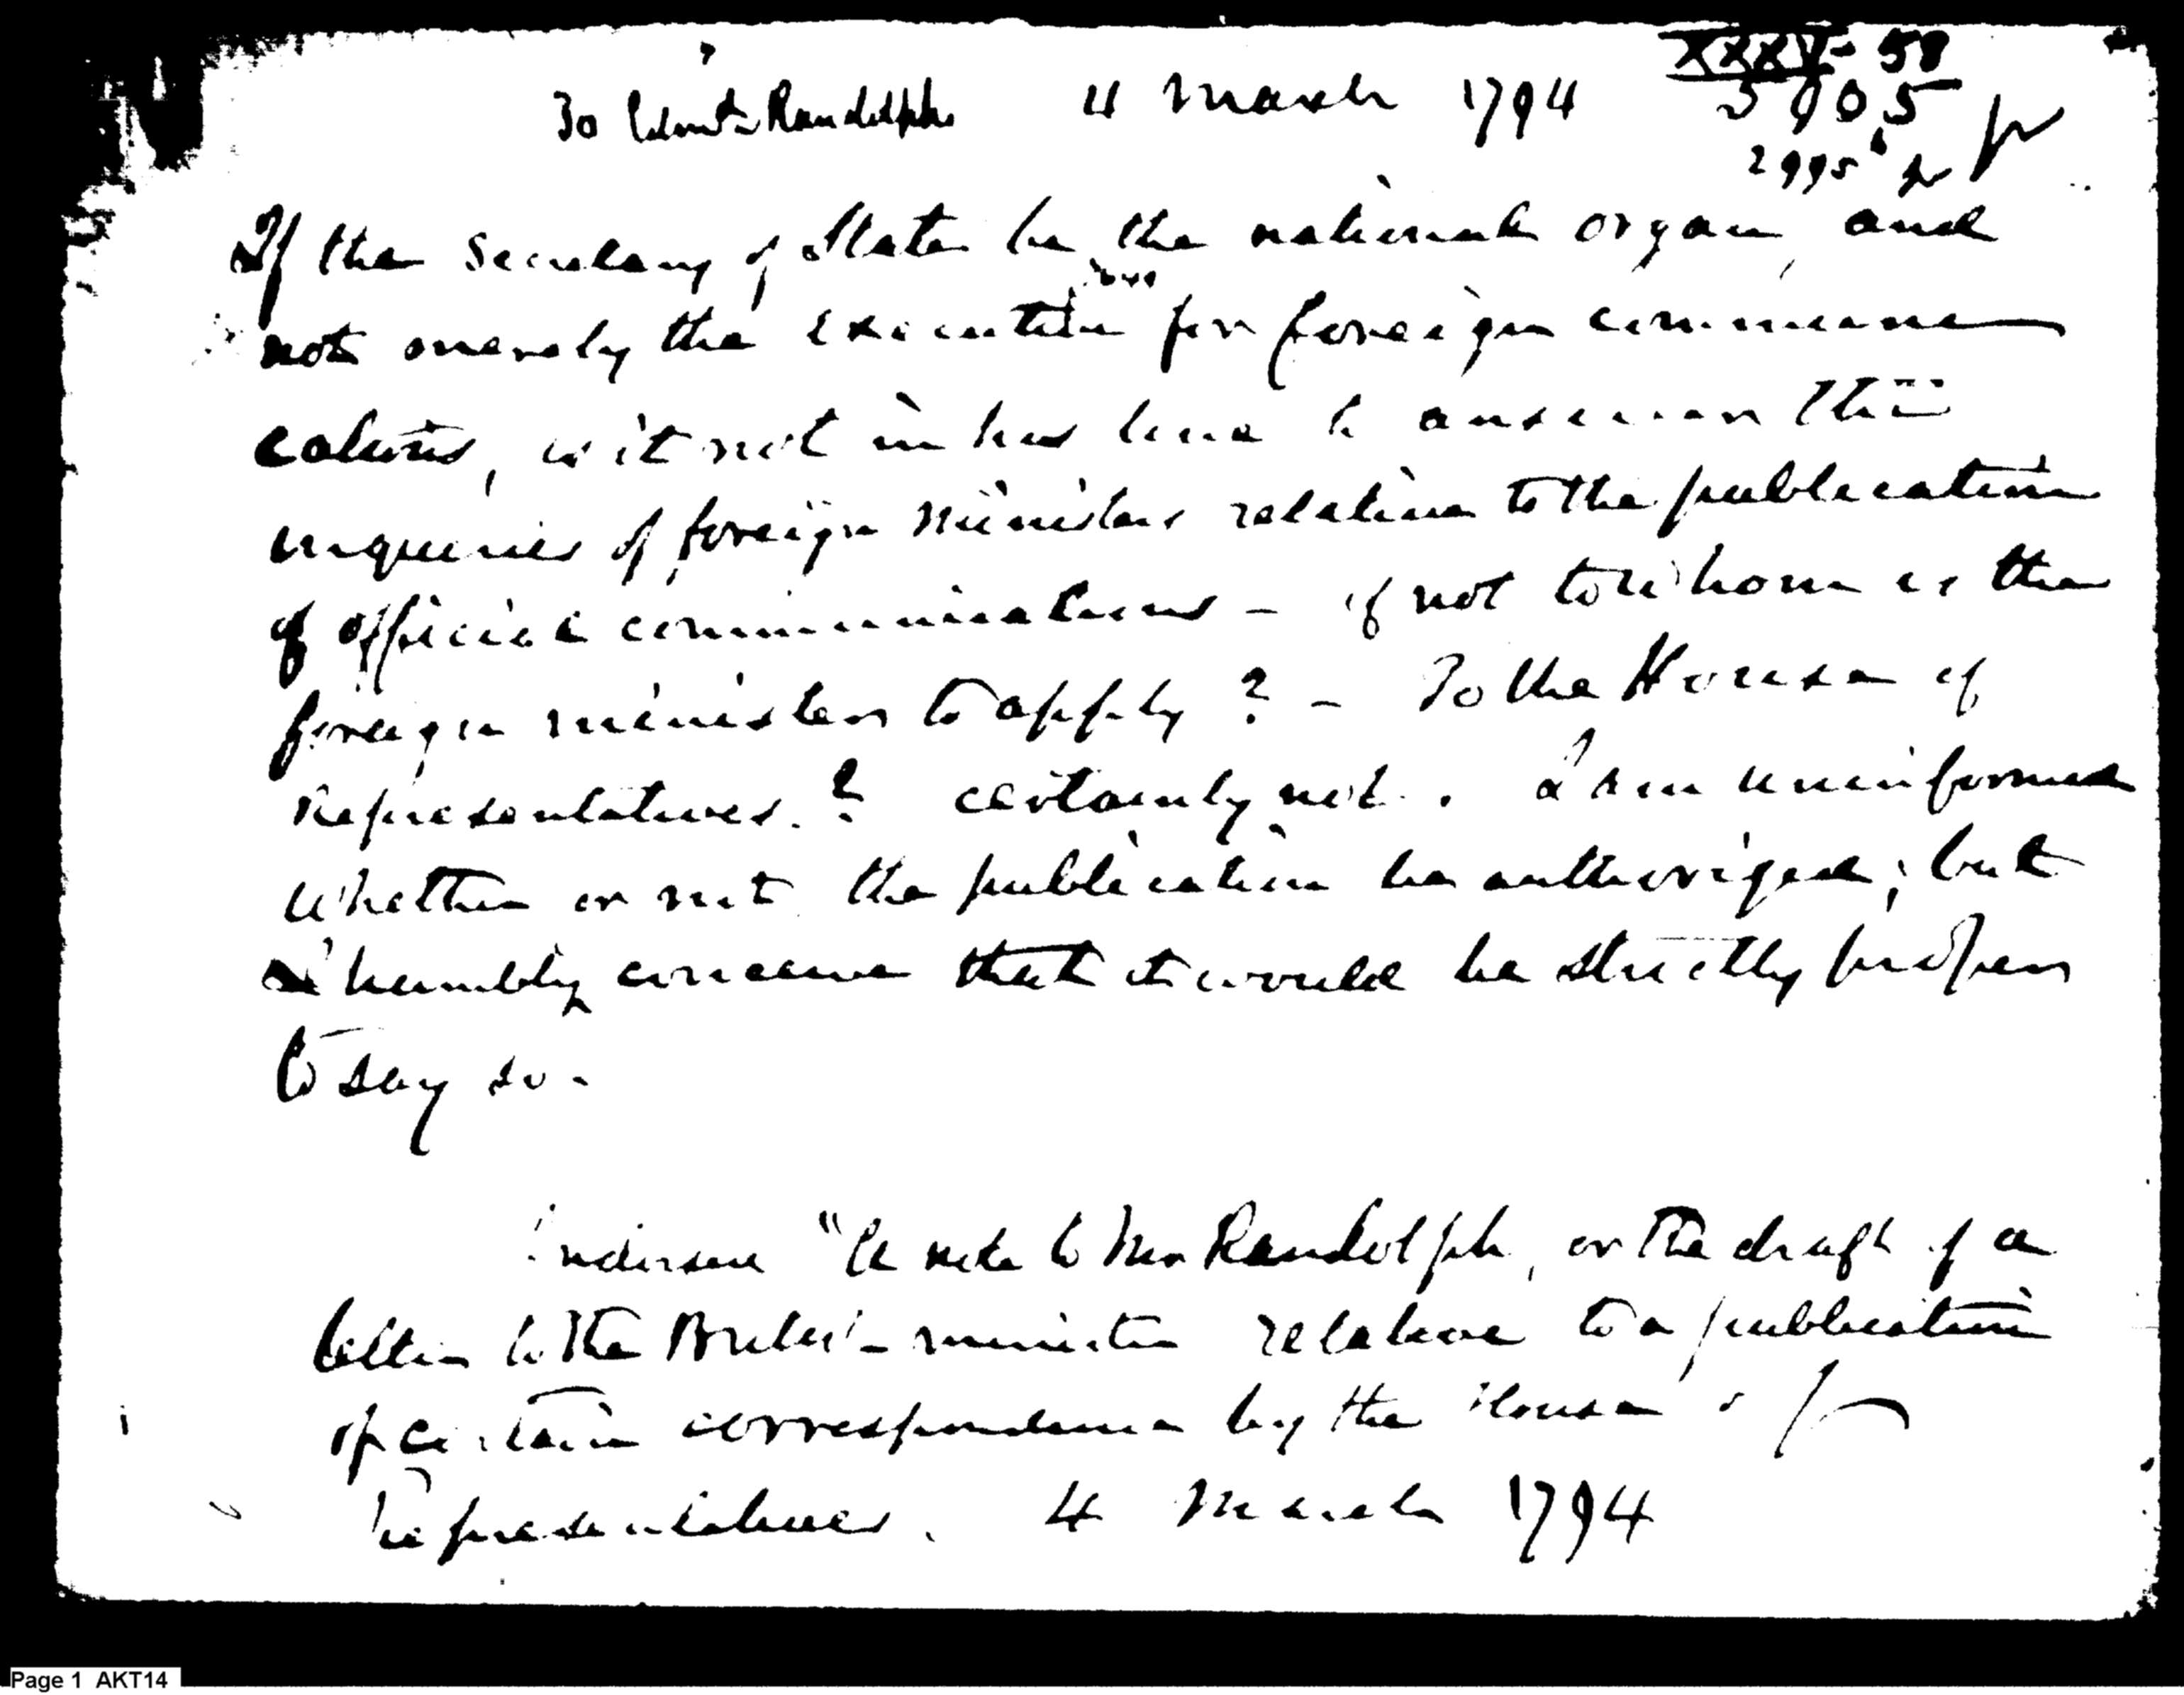 XXXV - 58
To Edmd Randolph 4 March 1794 5905
2995
If the Secretary of State be the national organ, and
not merely the executive for foreign communi
cations, is it not in his line to answer the
inquiries of foreign ministers relative to the publication
of official communications - if not to whom is the
foreign minister to apply? - To the House of
Representatives.? certainly not. I am uninformed
whether or not the publication be authorized; but
I humbly conceive that it would be strictly proper
to say so -
"A note to Mr Randolph, or the draft of a
letter to the British minister relative to a publication
of certain correspondence by the House of
Representatives. 4 March 1794
Page 1 AKT14